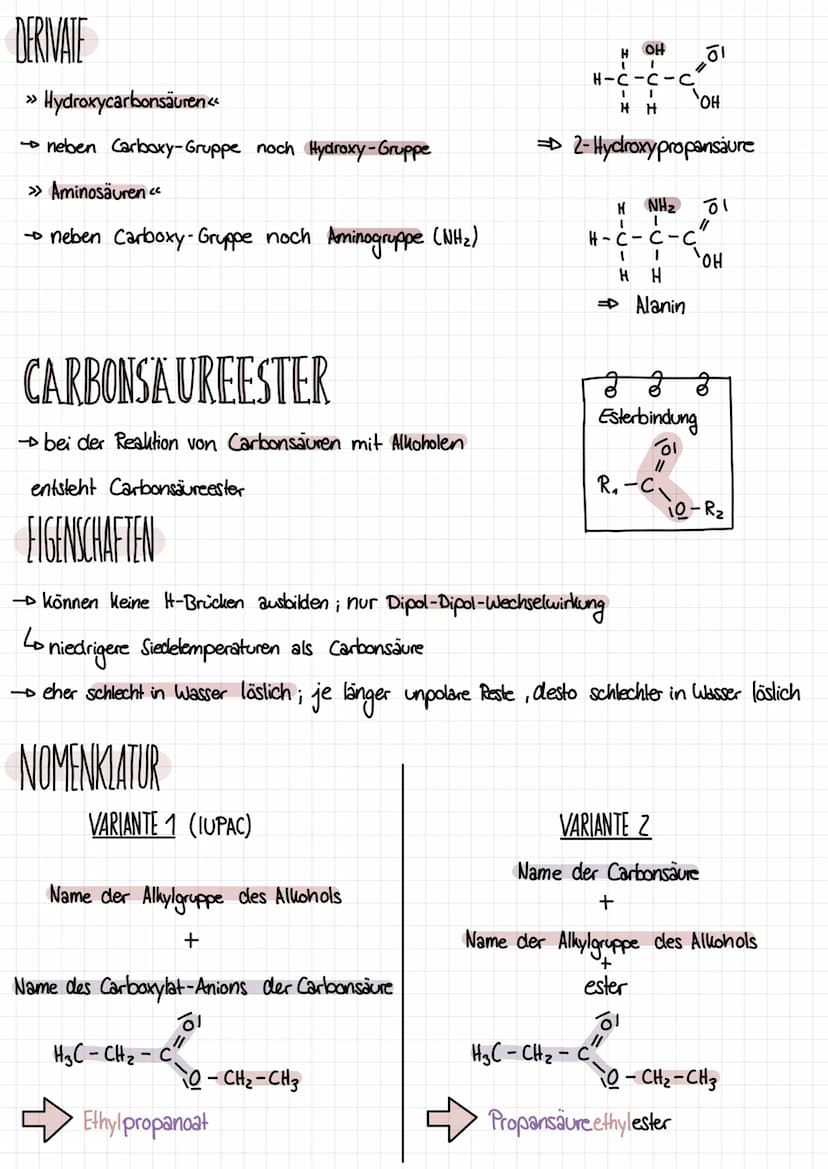 DERIVATE
» Hydroxycarbonsäuren «
→ neben Carboxy-Gruppe noch Hydroxy-Gruppe
H OH O
H-C-C-C
H H OH
⇒ 2-Hydroxypropansäure
» Aminosäuren «
→ neben Carboxy-Gruppe noch Aminogruppe (NH₂)
H NH₂ O
H-C-C-C
H H OH
⇒ Alanin
CARBONSÄUREESTER
→ bei der Reaktion von Carbonsäuren mit Alkoholen
entsteht Carbonsäureester
Esterbindung
O
R₁-C
O-R₂
EIGENSCHAFTEN
→ können keine H-Brücken ausbilden ; nur Dipol-Dipol-Wechselwirkung
↳ niedrigere Siedetemperaturen als Carbonsäure
→ eher schlecht in Wasser löslich ; je länger unpolare Reste , desto schlechter in Wasser löslich
NOMENKLATUR
VARIANTE 1 (IUPAC)
Name der Alkylgruppe des Alkohols
+
Name des Carboxylat-Anions der Carbonsäure
O
H₃C-CH₂-C
O-CH₂-CH₃
⇒ Ethylpropanoat
VARIANTE 2
Name der Carbonsäure
+
Name der Alkylgruppe des Alkohols
+
ester
O
H₃C-CH₂-C
O-CH₂-CH₃
⇒ Propansäureethylester